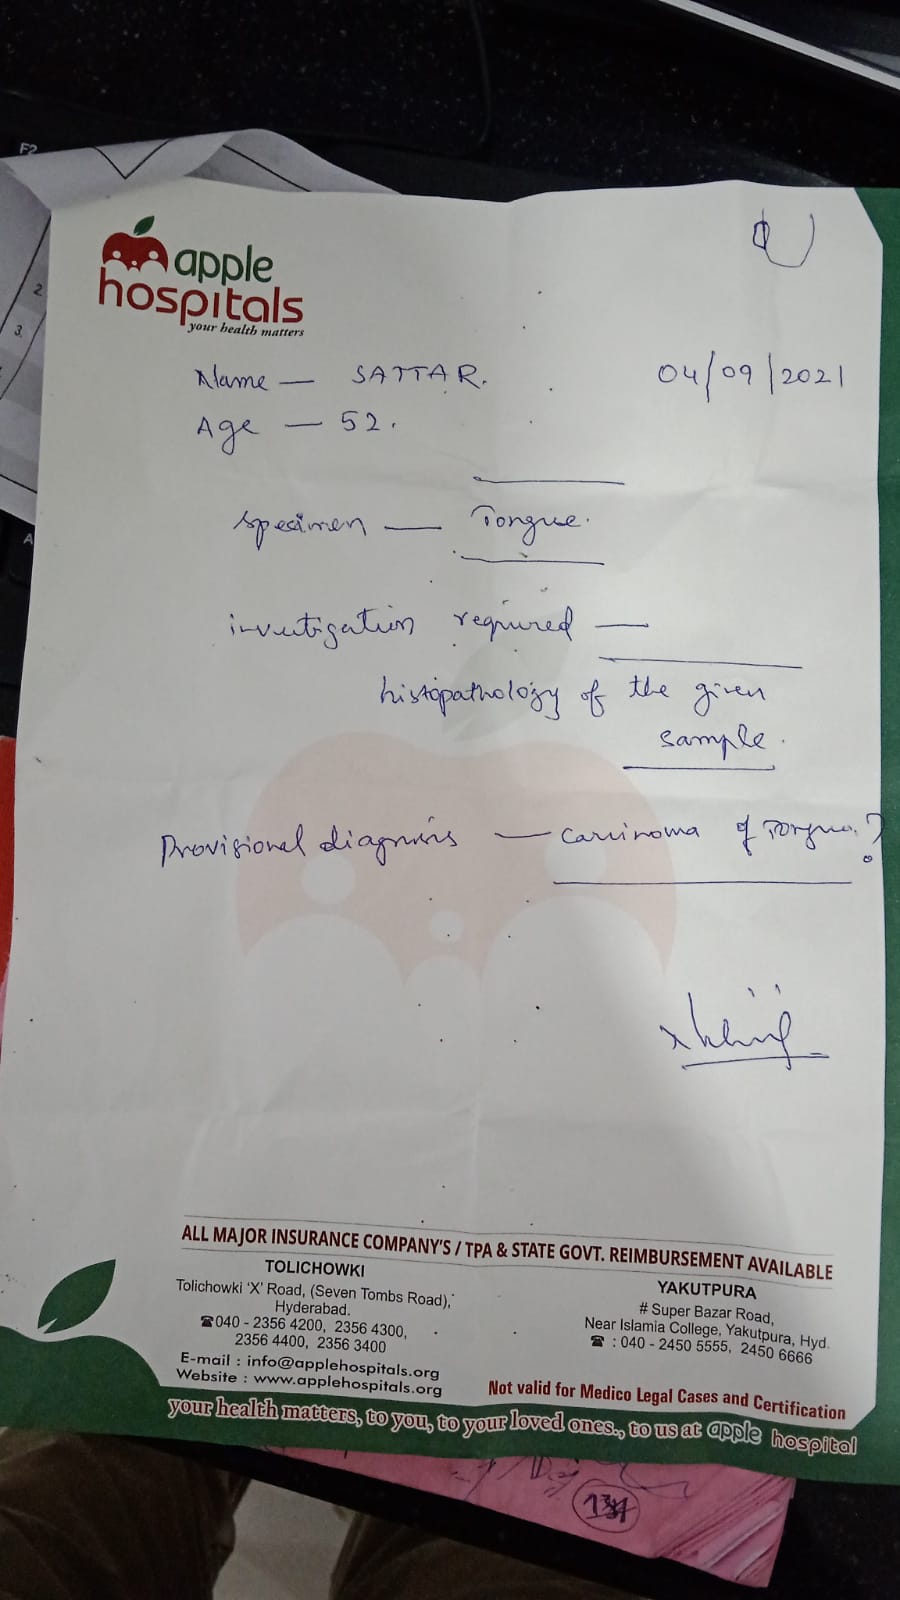 F2
2.
3.
A
apple
hospitals
your health matters
Name — SATTAR.
04/09/2021
Age — 52.
specimen — Tongue.
investigation required —
histopathology of the given
sample.
Provisional diagnosis — carcinoma of Tongue.?
ALL MAJOR INSURANCE COMPANY'S / TPA & STATE GOVT. REIMBURSEMENT AVAILABLE
TOLICHOWKI
Tolichowki 'X' Road, (Seven Tombs Road),
Hyderabad.
☎040 - 2356 4200, 2356 4300,
2356 4400, 2356 3400
E-mail : info@applehospitals.org
Website : www.applehospitals.org
YAKUTPURA
# Super Bazar Road,
Near Islamia College, Yakutpura, Hyd.
☎ : 040 - 2450 5555, 2450 6666
Not valid for Medico Legal Cases and Certification
your health matters, to you, to your loved ones., to us at apple hospital